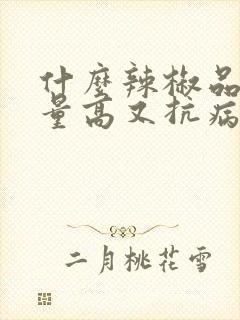 什麼辣椒品
量高又抗病
二月桃花雪